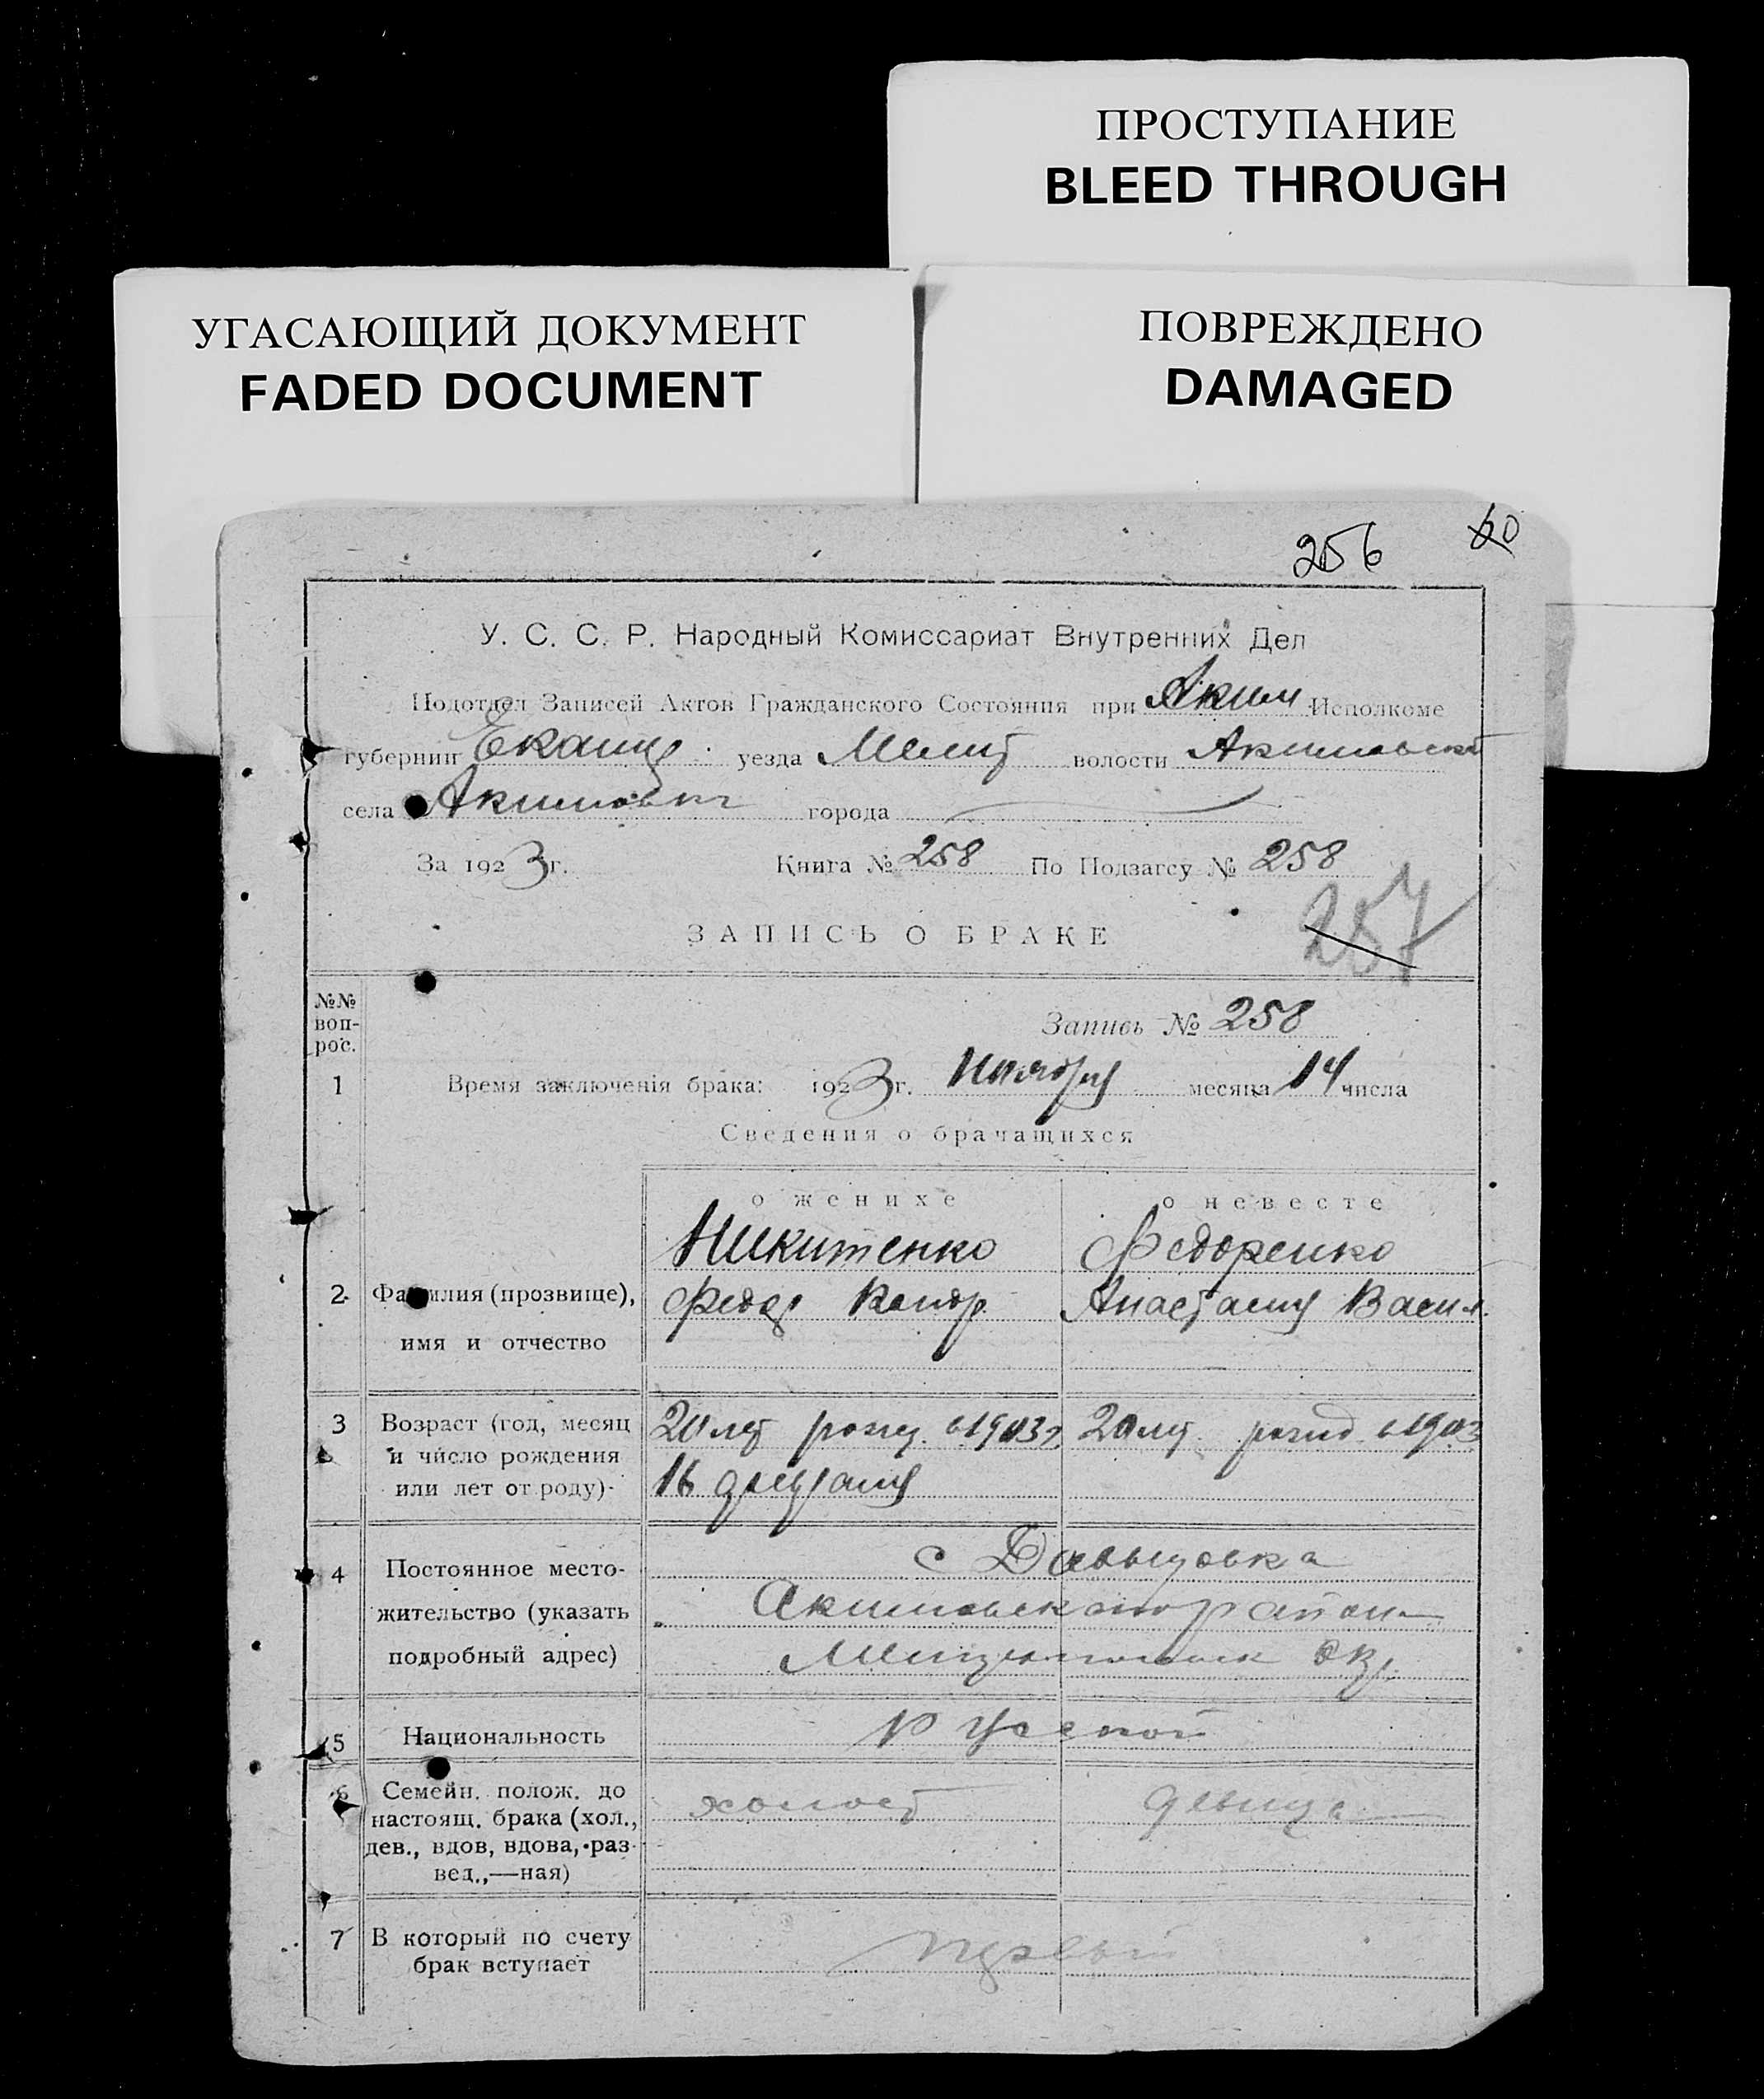 ПРОСТУПАНИЕ
BLEED THROUGH
УГАСАЮЩИЙ ДОКУМЕНТ
FADED DOCUMENT
ПОВРЕЖДЕНО
DAMAGED
256 60
У. С. С. Р. Народный Комиссариат Внутренних Дел
Подотдел Записей Актов Гражданского Состояния при Аким Исполкоме
губернии Екат уезда Мелит волости Акимовской
села Акимовки города
За 1923 г. Книга № 258 По Подзагсу № 258
257
ЗАПИСЬ О БРАКЕ
№№ воп-рос.
Запись № 258
1 Время заключенія брака: 1923 г. Ноября месяца 14 числа
Сведения о брачащихся
о женихе о невесте
Никитенко Федоренко
2 Фамилия (прозвище), Федор Кондр. Анастасия Васил.
имя и отчество
3 Возраст (год, месяц 20 лет рожд. в 1903 г. 20 лет рожд в 1903
и число рождения 16 февраля
или лет от роду)
с Давыдовка
4 Постоянное место-
жительство (указать Акимовского района
подробный адрес) Мелитопольск окр.
5 Национальность Русской
6 Семейн. полож. до холост девица
настоящ. брака (хол.,
дев., вдов, вдова, раз-
вед.,—ная)
7 В который по счету первый
брак вступает